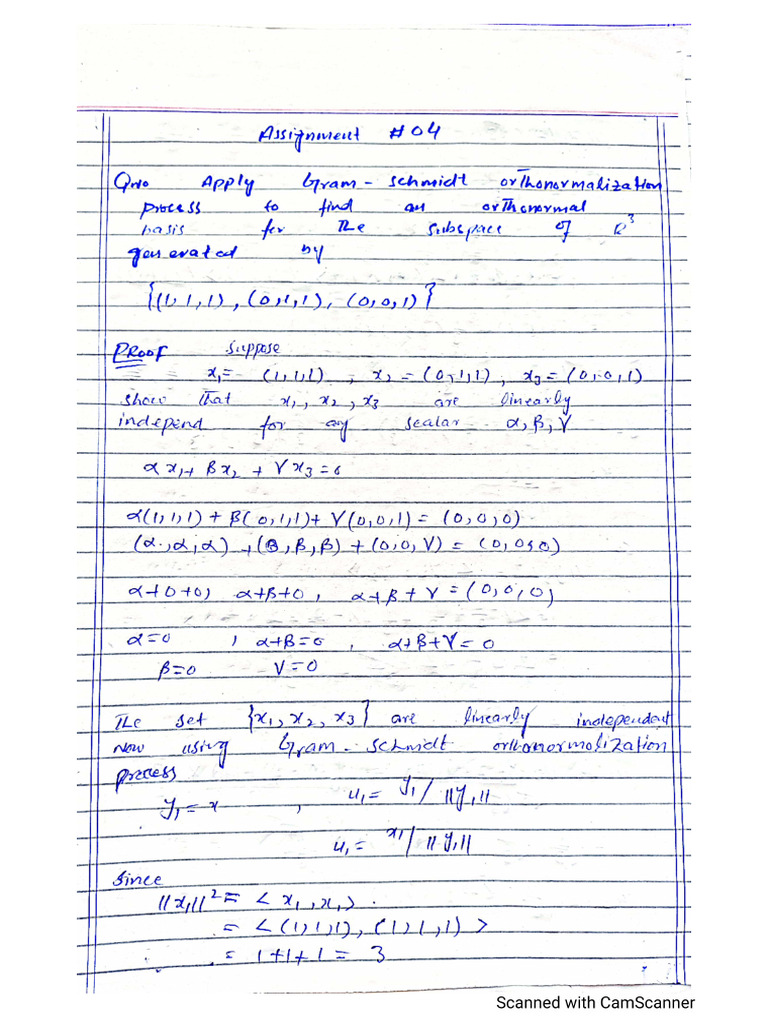 Assignment #04
Qno Apply Gram-Schmidt orthonormalization
process to find an orthonormal
basis for the subspace of R³
generated by
{(1,1,1), (0,1,1), (0,0,1)}
PROOF Suppose
x₁ = (1,1,1), x₂ = (0,1,1), x₃ = (0,0,1)
show that x₁, x₂, x₃ are linearly
independ for any scalar α, β, γ
αx₁ + βx₂ + γx₃ = 0
α(1,1,1) + β(0,1,1) + γ(0,0,1) = (0,0,0)
(α,α,α) + (β,β,β) + (0,0,γ) = (0,0,0)
α+0+0, α+β+0, α+β+γ = (0,0,0)
α=0 , α+β=0, α+β+γ=0
β=0 γ=0
The set {x₁, x₂, x₃} are linearly independent
now using Gram-Schmidt orthonormolization
process
y₁ = x , u₁ = y₁/||y₁||
u₁ = x₁/||y₁||
Since
||x₁||² = <x₁, x₁>.
= <(1,1,1), (1,1,1)>
= 1+1+1 = 3
Scanned with CamScanner